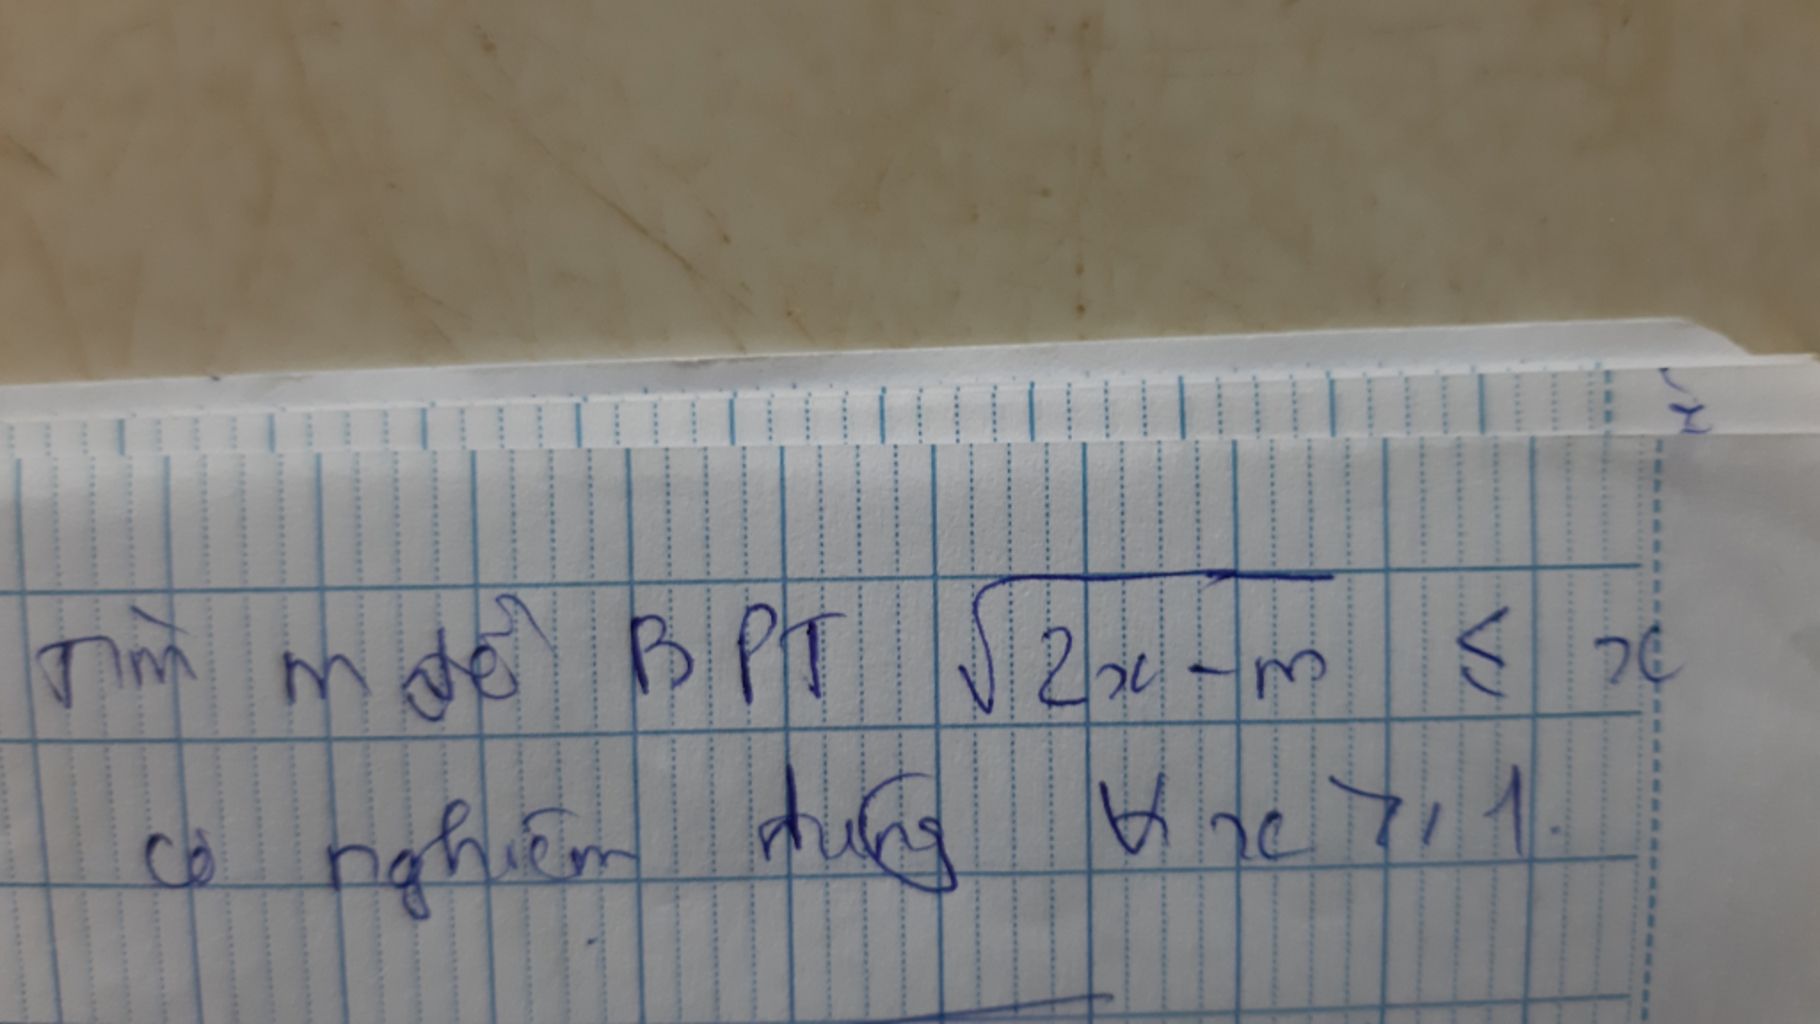 Tìm m để BPT √2x-m ≤ x
có nghiệm đúng ∀x ≥ 1.